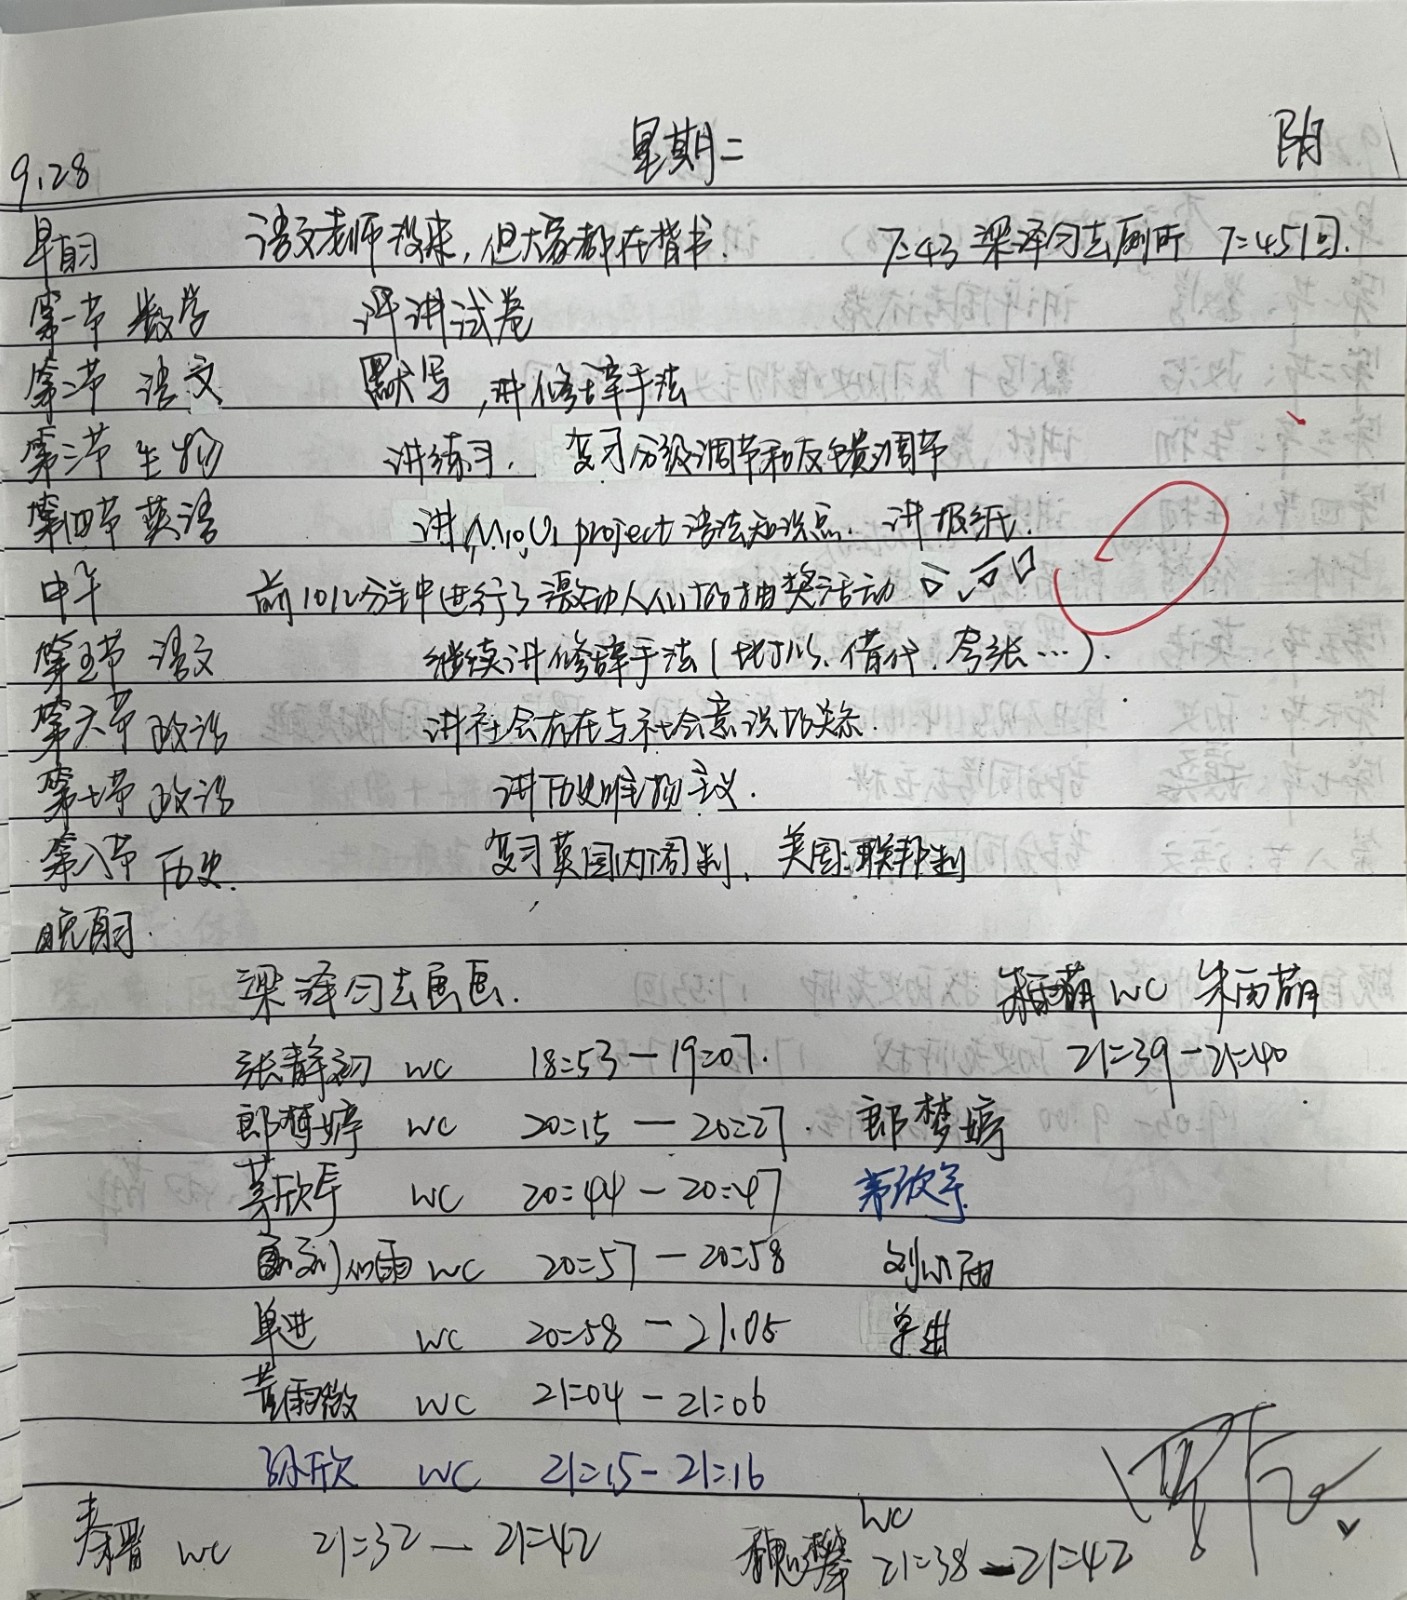 9.28 星期二 阴
早自习 语文老师没来，但大家都在背书. 7:43 梁泽匀去厕所 7:45回.
第一节 数学 评讲试卷
第二节 语文 默写，讲修辞手法
第三节 生物 讲练习. 复习分级调节和反馈调节
第四节 英语 讲M10U1 project语法知识点. 讲报纸.
中午 前10几分钟中进行了激动人心的抽奖活动
第五节 语文 继续讲修辞手法(比拟、借代、夸张…).
第六节 政治 讲社会存在与社会意识的关系.
第七节 政治 讲历史唯物主义.
第八节 历史. 复习英国内阁制、美国联邦制
晚自习.
梁泽匀去画画. 朱雨萌 WC 朱雨萌
张静初 WC 18:53—19:07. 21:39—21:40
郎梦婷 WC 20:15—20:27. 郎梦婷
茅欣辛 WC 20:44—20:47 茅欣辛
刘以雨 WC 20:57—20:58 刘以雨
单进 WC 20:58—21:05 单进
黄雨微 WC 21:04—21:06
孙欣 WC 21:15-21:16
秦 WC 21:32—21:42 WC 21:38—21:42